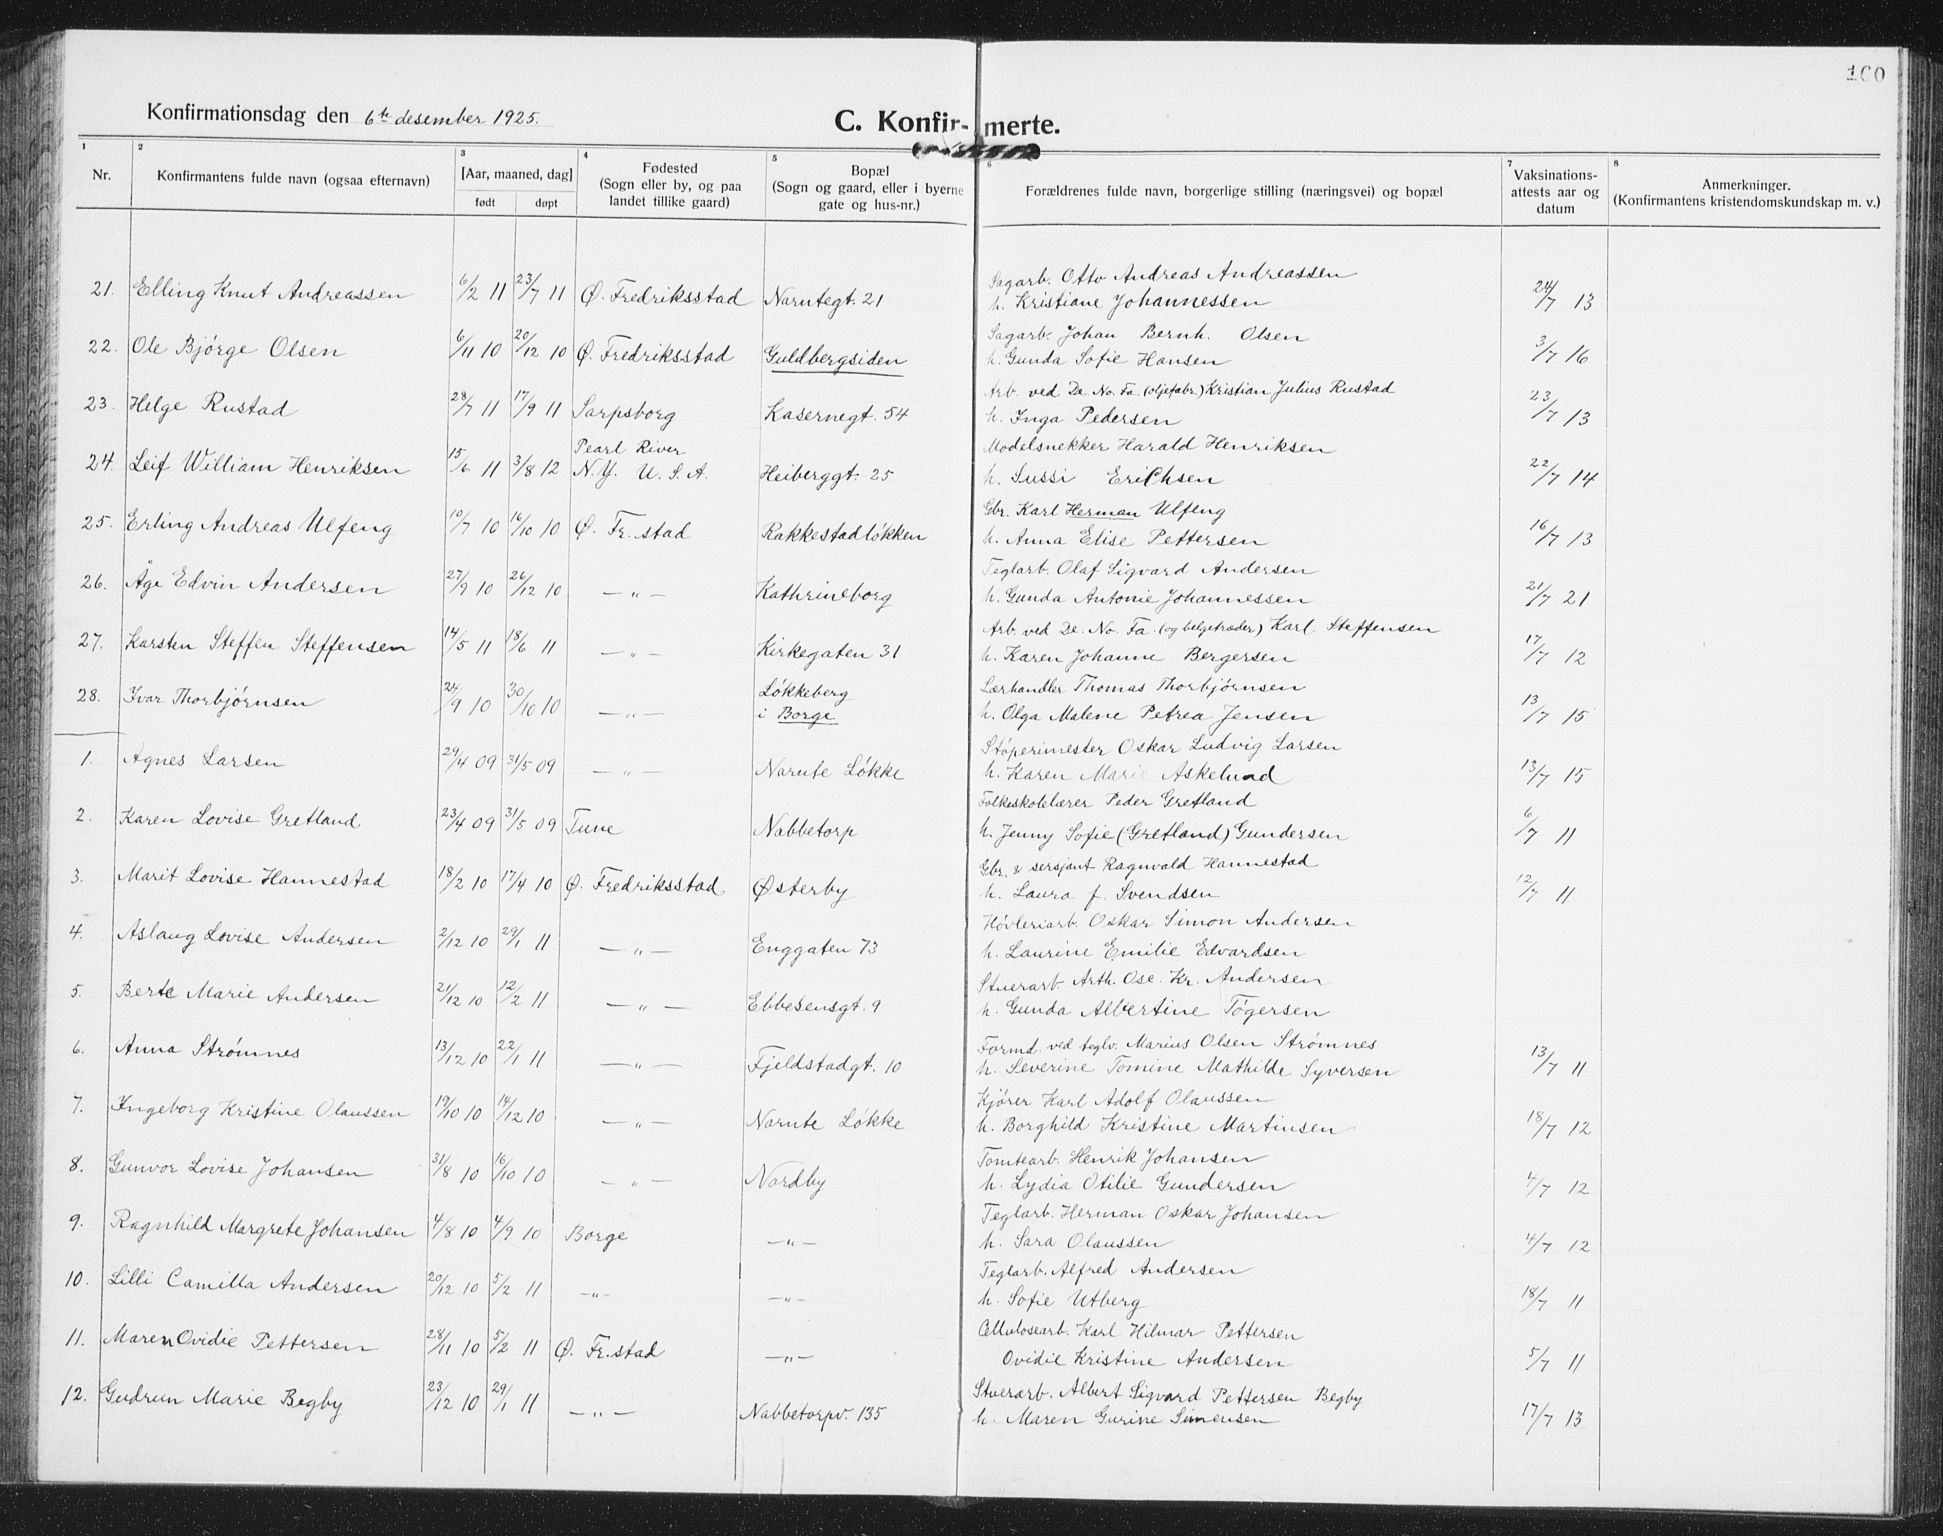 160
Konfirmationsdag den 6te desember 1925.
C. Konfirmerte.
1 2 3 4 5 6 7 8
Nr.
Konfirmantens fulde navn (ogsaa efternavn)
[Aar, maaned, dag]
født døpt
Fødested
(Sogn eller by, og paa
landet tillike gaard)
Bopæl
(Sogn og gaard, eller i byerne
gate og hus-nr.)
Forældrenes fulde navn, borgerlige stilling (næringsvei) og bopæl
Vaksinations-
attests aar og
datum
Anmerkninger.
(Konfirmantens kristendomskundskap m. v.)
Sagarb. Otto Andreas Andreassen
21. Elling Knut Andreassen 6/2 11 23/7 11 Ø. Fredriksstad Narntegt. 21 h. Kristiane Johannessen 24/7 13
Sagarb. Johan Bernh. Olsen
22. Ole Bjørge Olsen 6/11 10 20/12 10 Ø. Fredriksstad Guldbergsiden h. Gunda Sofie Hansen 3/7 16
Arb. ved De No. Fa. (oljefabr.) Kristian Julius Rustad
23. Helge Rustad 28/7 11 17/9 11 Sarpsborg Kasernegt. 54 h. Inga Pedersen 23/7 13
Pearl River Modelsnekker Harald Henriksen
24. Leif William Henriksen 15/6 11 3/8 12 N.Y. U.S.A. Heiberggt. 25 h. Sussi Erichsen 22/7 14
Gbr. Karl Herman Ulfeng
25. Erling Andreas Ulfeng 10/7 10 16/10 10 Ø. Fr.stad Rakkestadløkken h. Anna Elise Pettersen 16/7 13
Teglarb. Olaf Sigvard Andersen
26. Åge Edvin Andersen 27/9 10 26/12 10 — " — Kathrineborg h. Gunda Antonie Johannessen 21/7 21
Arb. ved De. No. Fa. (og belgetræder) Karl Steffensen
27. Karsten Steffen Steffensen 14/5 11 18/6 11 — " — Kirkegaten 31 h. Karen Johanne Bergersen 17/7 12
Løkkeberg Lærhandler Thomas Thorbjørnsen
28. Ivar Thorbjørnsen 24/9 10 30/10 10 — " — i Borge h. Olga Malene Petrea Jensen 13/7 15
Støperimester Oskar Ludvig Larsen
1. Agnes Larsen 29/4 09 31/5 09 — " — Narnte Løkke h. Karen Marie Askelund 13/7 15
Folkeskolelærer Peder Gretland
2. Karen Lovise Gretland 23/4 09 31/5 09 Tune Nabbetorp h. Jenny Sofie (Gretland) Gundersen 6/7 11
Gbr. & sersjant Ragnvald Hannestad
3. Marit Lovise Hannestad 18/2 10 17/4 10 Ø. Fredriksstad Østerby h. Laura f. Svendsen 12/7 11
Høvleriarb. Oskar Simon Andersen
4. Aslaug Lovise Andersen 2/12 10 29/1 11 — " — Enggaten 73 h. Laurine Emilie Edvardsen
Stuerarb. Arth. Osc. Kr. Andersen
5. Berte Marie Andersen 21/12 10 12/2 11 — " — Ebbesensgt. 9 h. Gunda Albertine Tøgersen
Formd. ved teglv. Marius Olsen Strømnes
6. Anna Strømnes 13/12 10 22/1 11 — " — Fjeldstadgt. 10 h. Severine Tomine Mathilde Syversen 13/7 11
Kjører Karl Adolf Olaussen
7. Ingeborg Kristine Olaussen 19/10 10 14/12 10 — " — Narnte Løkke h. Borghild Kristine Martinsen 18/7 12
Tomtearb. Henrik Johansen
8. Gunvor Lovise Johansen 31/8 10 16/10 10 — " — Nordby h. Lydia Otilie Gundersen 4/7 12
Teglarb. Herman Oskar Johansen
9. Ragnhild Margrete Johansen 4/8 10 4/9 10 Borge — " — h. Sara Olaussen 4/7 12
Teglarb. Alfred Andersen
10. Lilli Camilla Andersen 20/12 10 5/2 11 — " — — " — h. Sofie Utberg 18/7 11
Cellulosearb. Karl Hilmar Pettersen
11. Maren Ovidie Pettersen 28/11 10 5/2 11 Ø. Fr.stad — " — Ovidie Kristine Andersen 5/7 11
Stuerarb. Albert Sigvard Pettersen Begby
12. Gudrun Marie Begby 23/12 10 29/1 11 — " — Nabbetorpv. 135 h. Maren Gurine Simensen 17/7 13